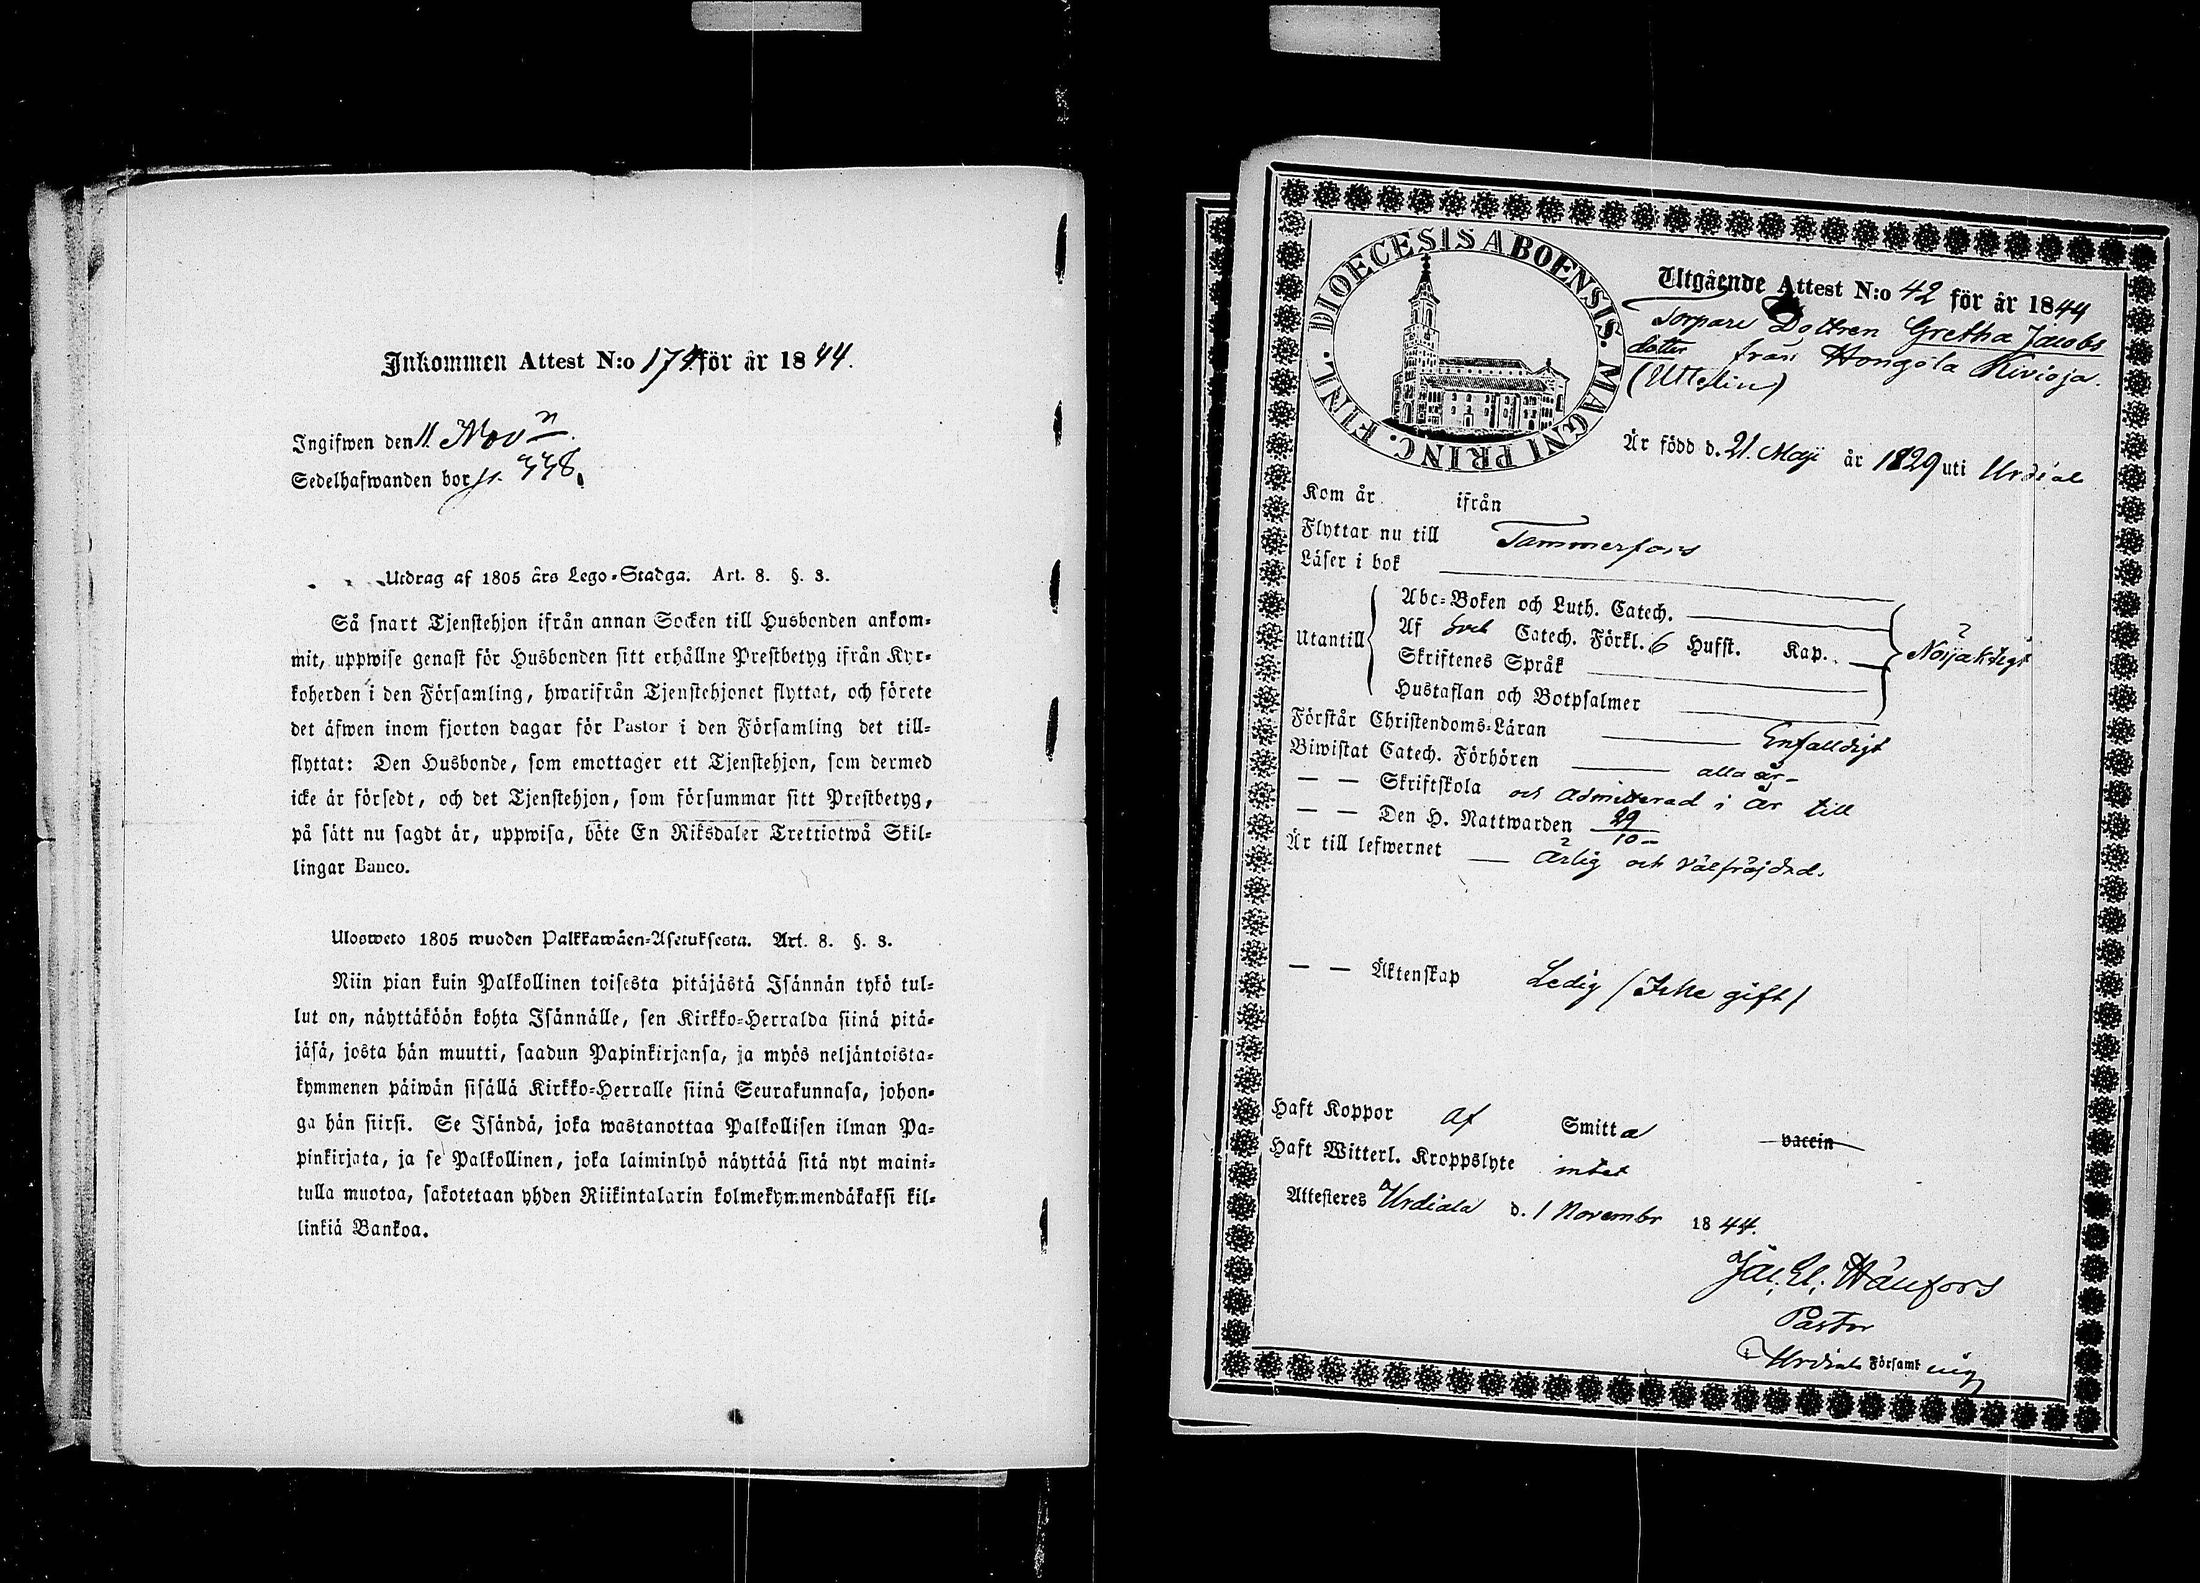 Inkommen Attest N:o 174 för år 1844.
Ingifwen den 11 Novn.
Sedelhafwanden bor p. 338.
Utdrag af 1805 års Lego-Stadga. Art. 8. §. 3.
Så snart Tjenstehjon ifrån annan Socken till Husbonden ankom-
mit, uppwise genast för Husbonden sitt erhållne Prestbetyg ifrån Kyr-
koherden i den Församling, hwarifrån Tjenstehjonet flyttat, och förete
det äfwen inom fjorton dagar för Pastor i den Församling det till-
flyttat: Den Husbonde, som emottager ett Tjenstehjon, som dermed
icke är försedt, och det Tjenstehjon, som försummar sitt Prestbetyg,
på sätt nu sagdt är, uppwisa, böte En Riksdaler Trettiotwå Skil-
lingar Banco.
Ulosweto 1805 wuoden Palkkawäen-Asetuksesta. Art. 8. §. 3.
Niin pian kuin Palkollinen toisesta pitäjästä Isännän tykö tul-
lut on, näyttäköön kohta Isännälle, sen Kirkko-Herralda siinä pitä-
jäsä, josta hän muutti, saadun Papinkirjansa, ja myös neljäntoista-
kymmenen päiwän sisällä Kirkko-Herralle siinä Seurakunnasa, johon-
ga hän siirsi. Se Isändä, joka wastanottaa Palkollisen ilman Pa-
pinkirjata, ja se Palkollinen, joka laiminlyö näyttää sitä nyt maini-
tulla muotoa, sakotetaan yhden Riikintalarin kolmekymmendäkaksi kil-
linkiä Bankoa.
DIOECESIS ABOENSIS. MAGNI PRINC. FINL.
Utgående Attest N:o 42 för år 1844
Torpare Dottren Gretha Jacobs
dotter från Hongola Kivioja.
Är född d. 21 Maji år 1829 uti Urdiala
Kom år ifrån
Flyttar nu till Tammerfors
Läser i bok
Utantill Abc-Boken och Luth. Catech.
Af Catech. Förkl. 6 Hufst. Kap. Nöjaktigt
Skriftenes Språk
Hustaflan och Botpsalmer
Förstår Christendoms-Läran Enfalldigt
Biwistat Catech. Förhören alla år
— — Skriftskola och admitterad i år till
— — Den H. Nattwarden 29/10
Är till lefwernet Ärlig och välfräjdad.
— — Äktenskap Ledig (Icke gift)
Haft Koppor af Smitta vaccin
Haft Witterl. Kroppslyte intet
Attesteres Urdiala d. 1 Novembr 1844.
Pastor
i Urdiala Församling